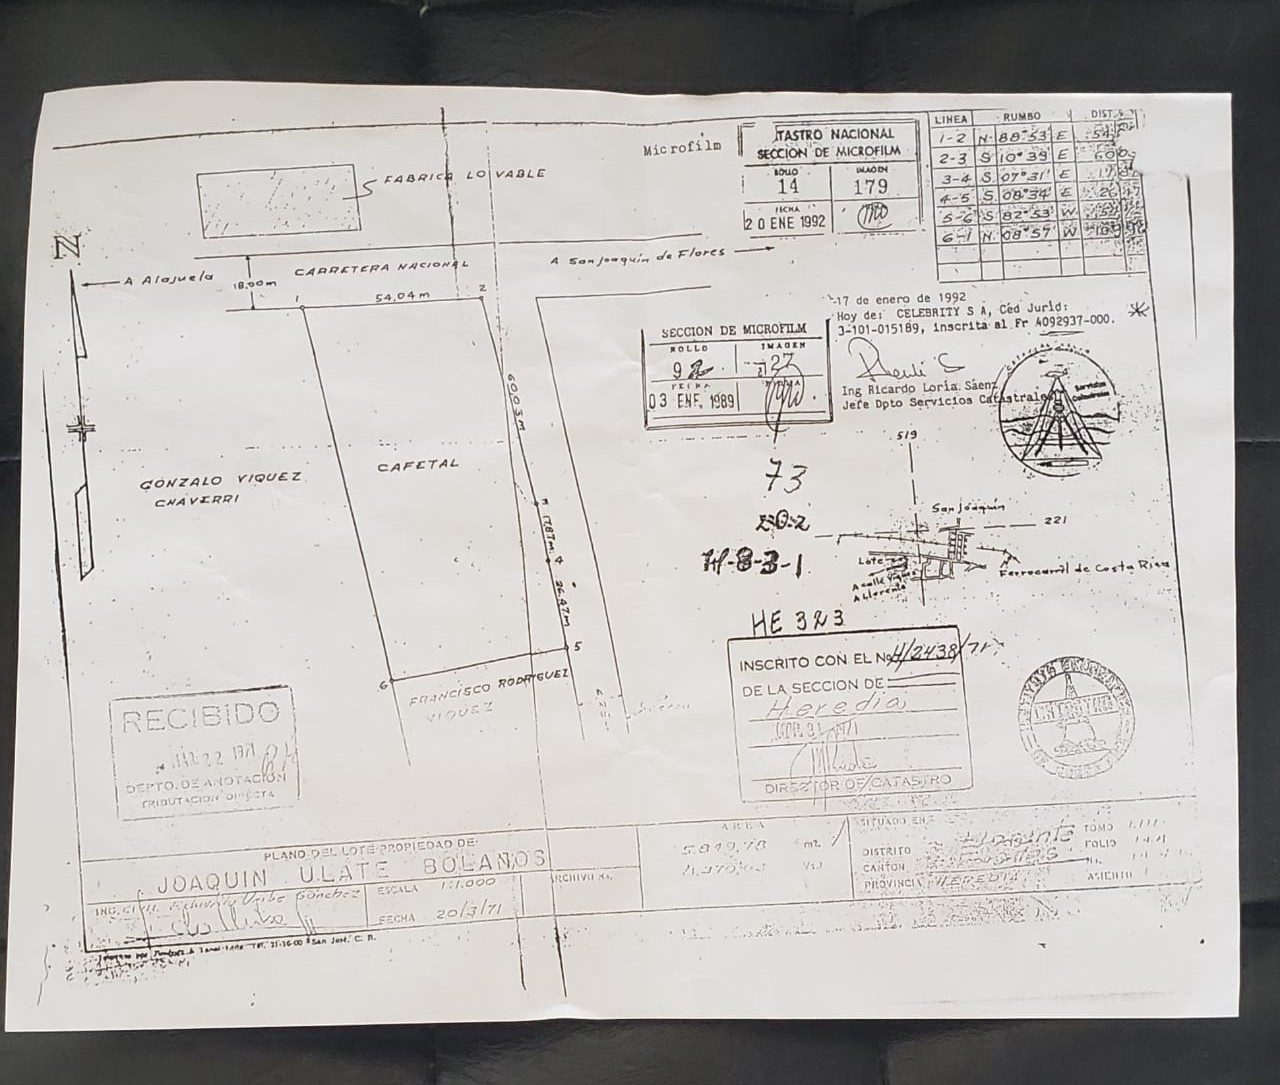 Microfilm
TASTRO NACIONAL
SECCION DE MICROFILM
ROLLO IMAGEN
14 179
FECHA
20 ENE 1992
LINEA RUMBO DIST.
1-2 N 88°53' E 54,
2-3 S 10°39' E 60,0
3-4 S 07°31' E 17,8
4-5 S 08°34' E 26,
5-6 S 82°53' W
6-1 N 08°57' W 109,96
FABRICA LOVABLE
N
A Alajuela
18,00m
CARRETERA NACIONAL
A San Joaquín de Flores
1
54,04 m
2
17 de enero de 1992
Hoy de: CELEBRITY S A, Ced Jurid:
3-101-015189, inscrita al Fr 4092937-000.
Ing Ricardo Loria Sáenz
Jefe Dpto Servicios Catastrales
SECCION DE MICROFILM
ROLLO IMAGEN
92 27
FECHA
03 ENE. 1989
Servicios
Catastrales
60,03 m
GONZALO VIQUEZ
CHAVERRI
CAFETAL
3
17,87 m.
4
26,47 m
5
6
FRANCISCO RODRIGUEZ
VIQUEZ
73
202
H-8-3-1
HE 323
519
San Joaquín
221
Lote
A Llorente
Ferrocarril de Costa Rica
INSCRITO CON EL No H/2438/71
DE LA SECCION DE
Heredia
DIRECTOR DE CATASTRO
RECIBIDO
22 1971
DEPTO. DE ANOTACION
TRIBUTACION DIRECTA
PLANO DEL LOTE PROPIEDAD DE:
JOAQUIN ULATE BOLAÑOS
ING. CIVIL Eduardo Uribe Sánchez
ESCALA 1:1.000
FECHA 20/3/71
ARCHIVO No.
AREA
5.899,78 m2
SITUADO EN:
DISTRITO Llorente
CANTON
PROVINCIA HEREDIA
TOMO
FOLIO
No.
ASIENTO
San José, C. R.